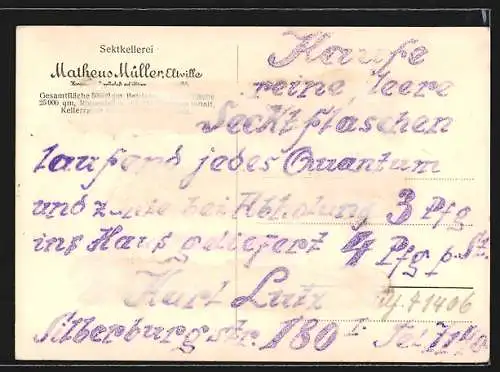 Sektkellerei
Matheus Müller, Eltville
Gesamtfläche
25 000 qm,
Kaufe
reine, leere
Secktflaschen
laufend jedes Quantum
und zahle bei Abholung 3 Pfg
ins Haus geliefert 4 Pfg p. St.
Karl Lutz
Silberburgstr. 180 I